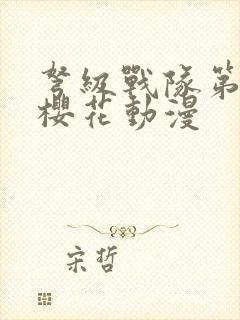 弩級戰隊第
櫻花動漫
宋哲